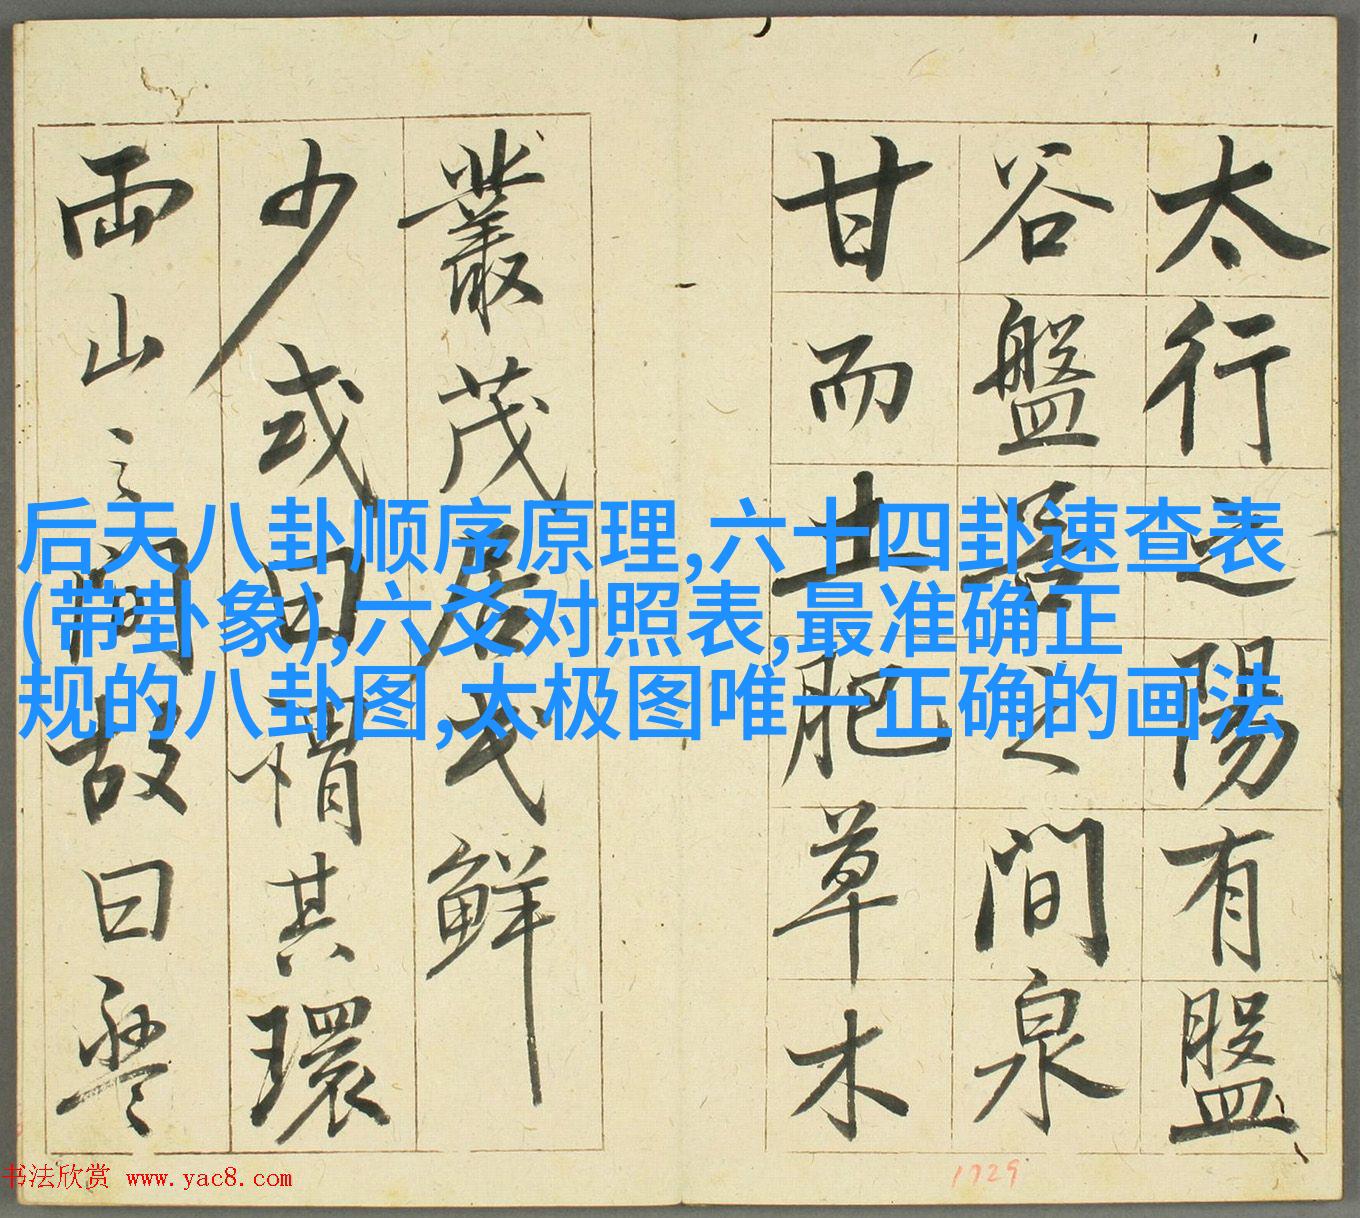 太行之陽有盤
谷盤谷之間泉
甘而土肥草木
叢茂居民鮮
少或曰謂其環
兩山之間故曰盤
后天八卦顺序原理,六十四卦速查表
(带卦象),六爻对照表,最准确正
规的八卦图,太极图唯一正确的画法
书法欣赏 www.yac8.com
1729